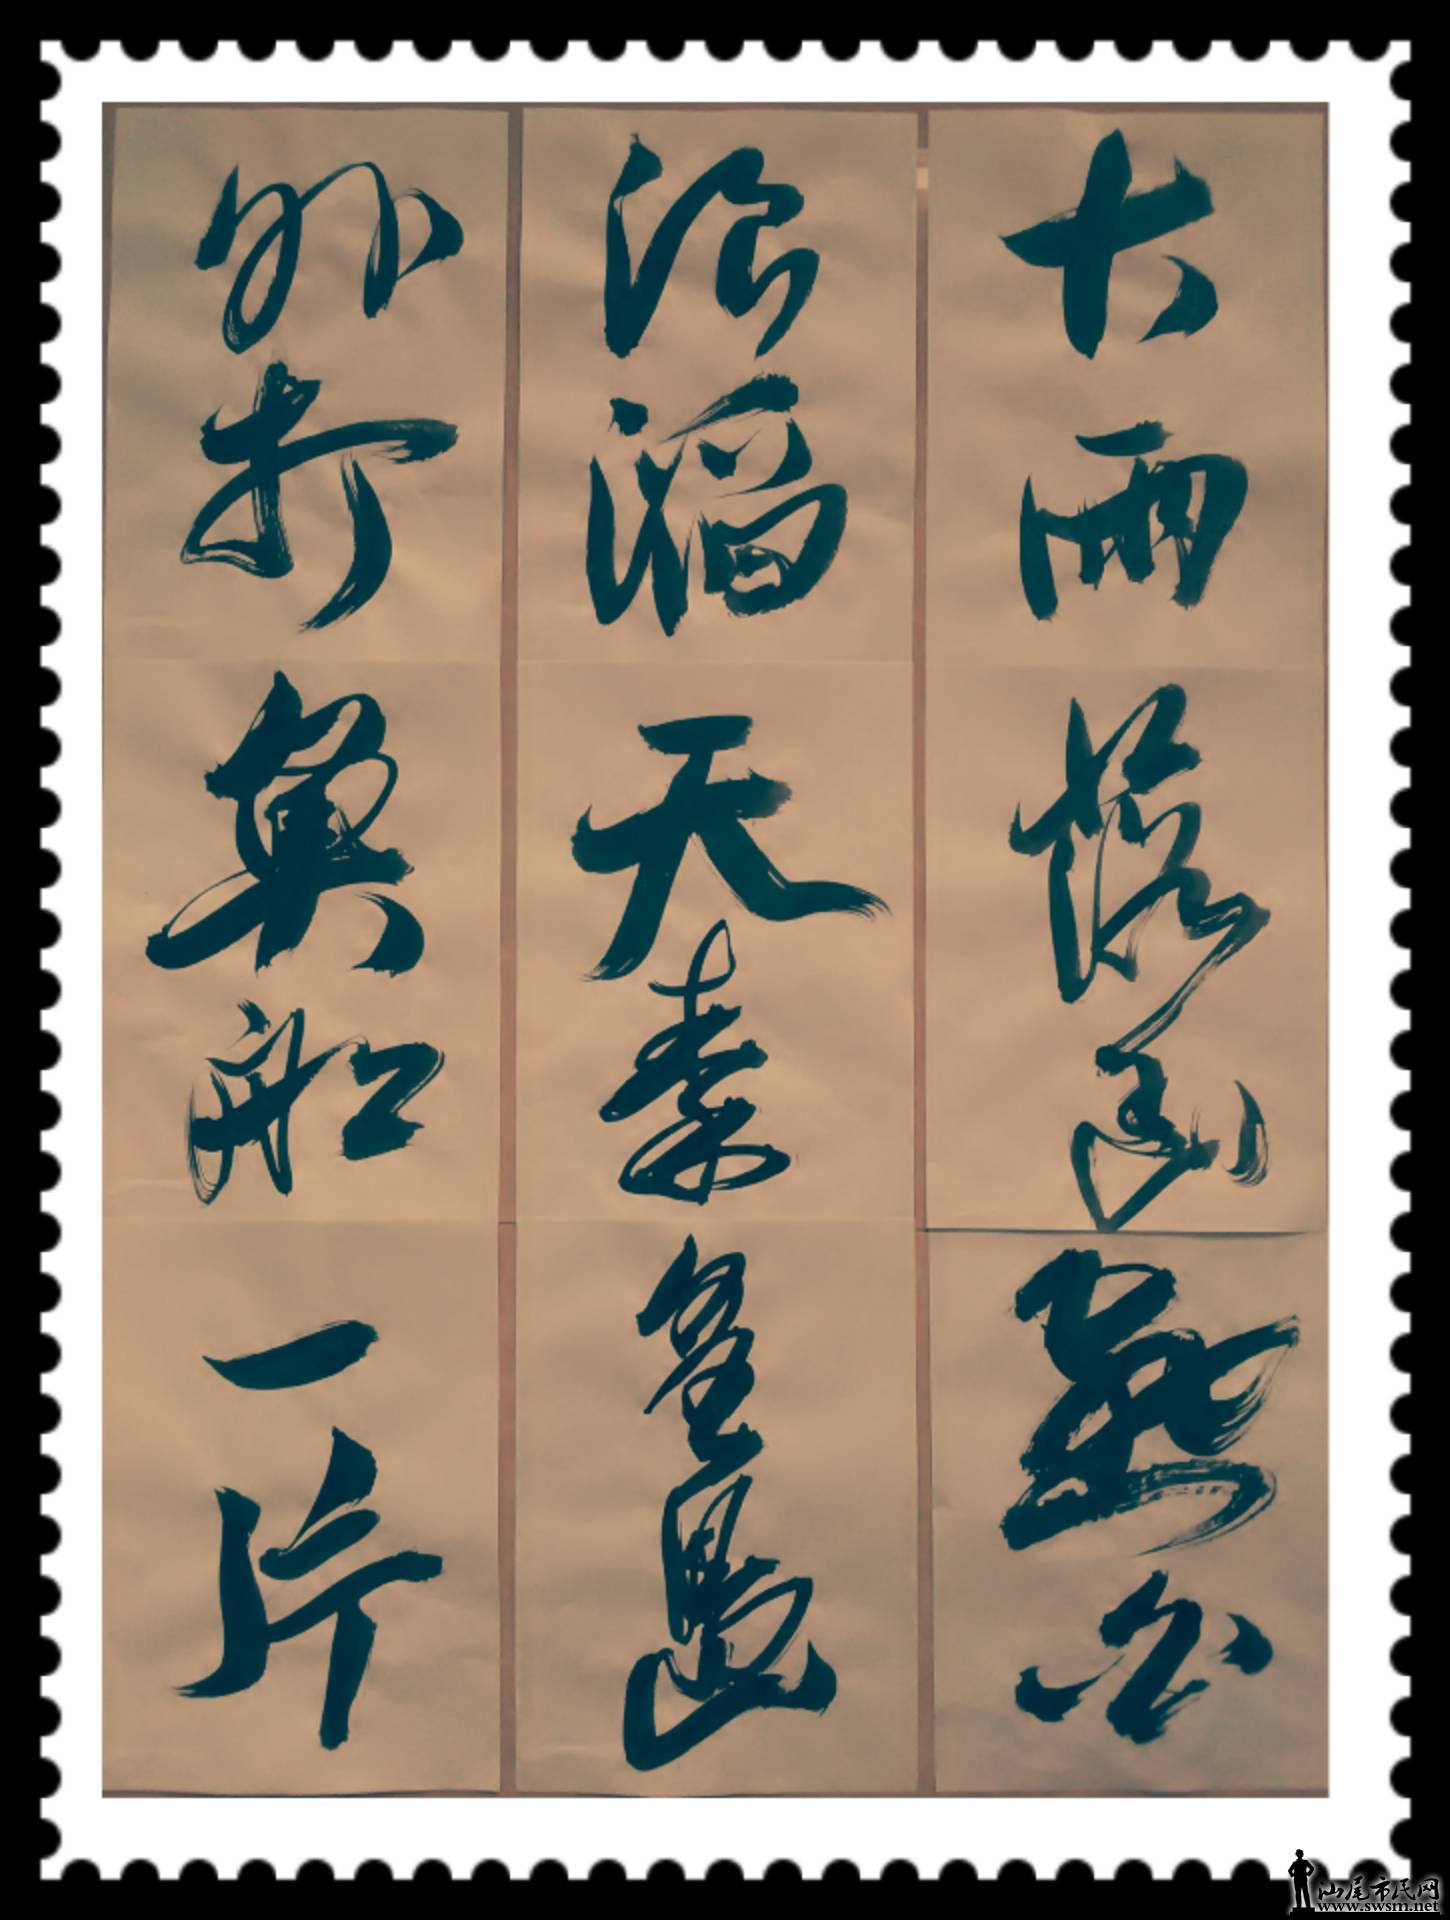 大雨落幽燕白
浪滔天秦皇島
外打魚船一片
汕尾市民网
www.swsm.net